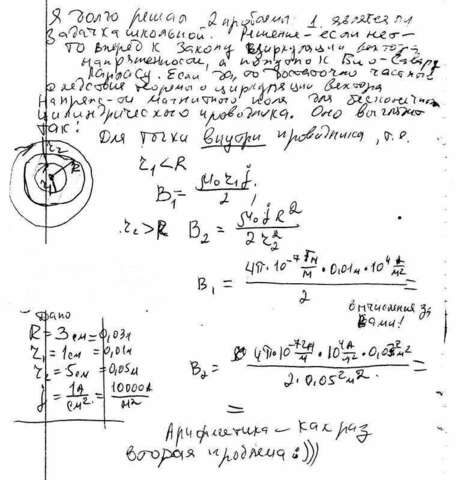 Я долго решал 2 проблемы: 1. является ли
задачка школьной. Решение - если нет -
то вперед к Закону циркуляции вектора
напряженности, а попутно к Био-Савару
Лапласу. Если да, то достаточно частного
следствия теоремы о циркуляции вектора
напряж-ти магнитного поля для бесконечного
цилиндрического проводника. Оно выглядит
так:
Для точки внутри проводника, т.е.
r₁ < R
B₁ = μ₀ r₁ j / 2;
r₂ > R B₂ = μ₀ j R² / 2 r₂²
B₁ = 4π·10⁻⁷ Гн/м · 0,01м · 10⁴ А/м² / 2 =
вычисления за
Вами!
Дано
R = 3см = 0,03м
r₁ = 1см = 0,01м
r₂ = 5см = 0,05м
j = 1А/см² = 10000А/м²
B₂ = 4π·10⁻⁷ Гн/м · 10⁴ А/м² · 0,03² м² / 2·0,05² м² =
=
Арифметика - как раз
вторая проблема :)))
r₂
R
r₁